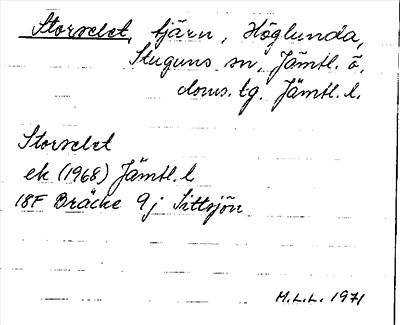 Storselet, tjärn, Höglunda,
Stuguns sn, Jämtl. ö.
doms.tg. Jämtl. l.
Storselet
ek (1968) Jämtl. l
18F Bräcke 9j Sittsjön
M.L.L. 1971